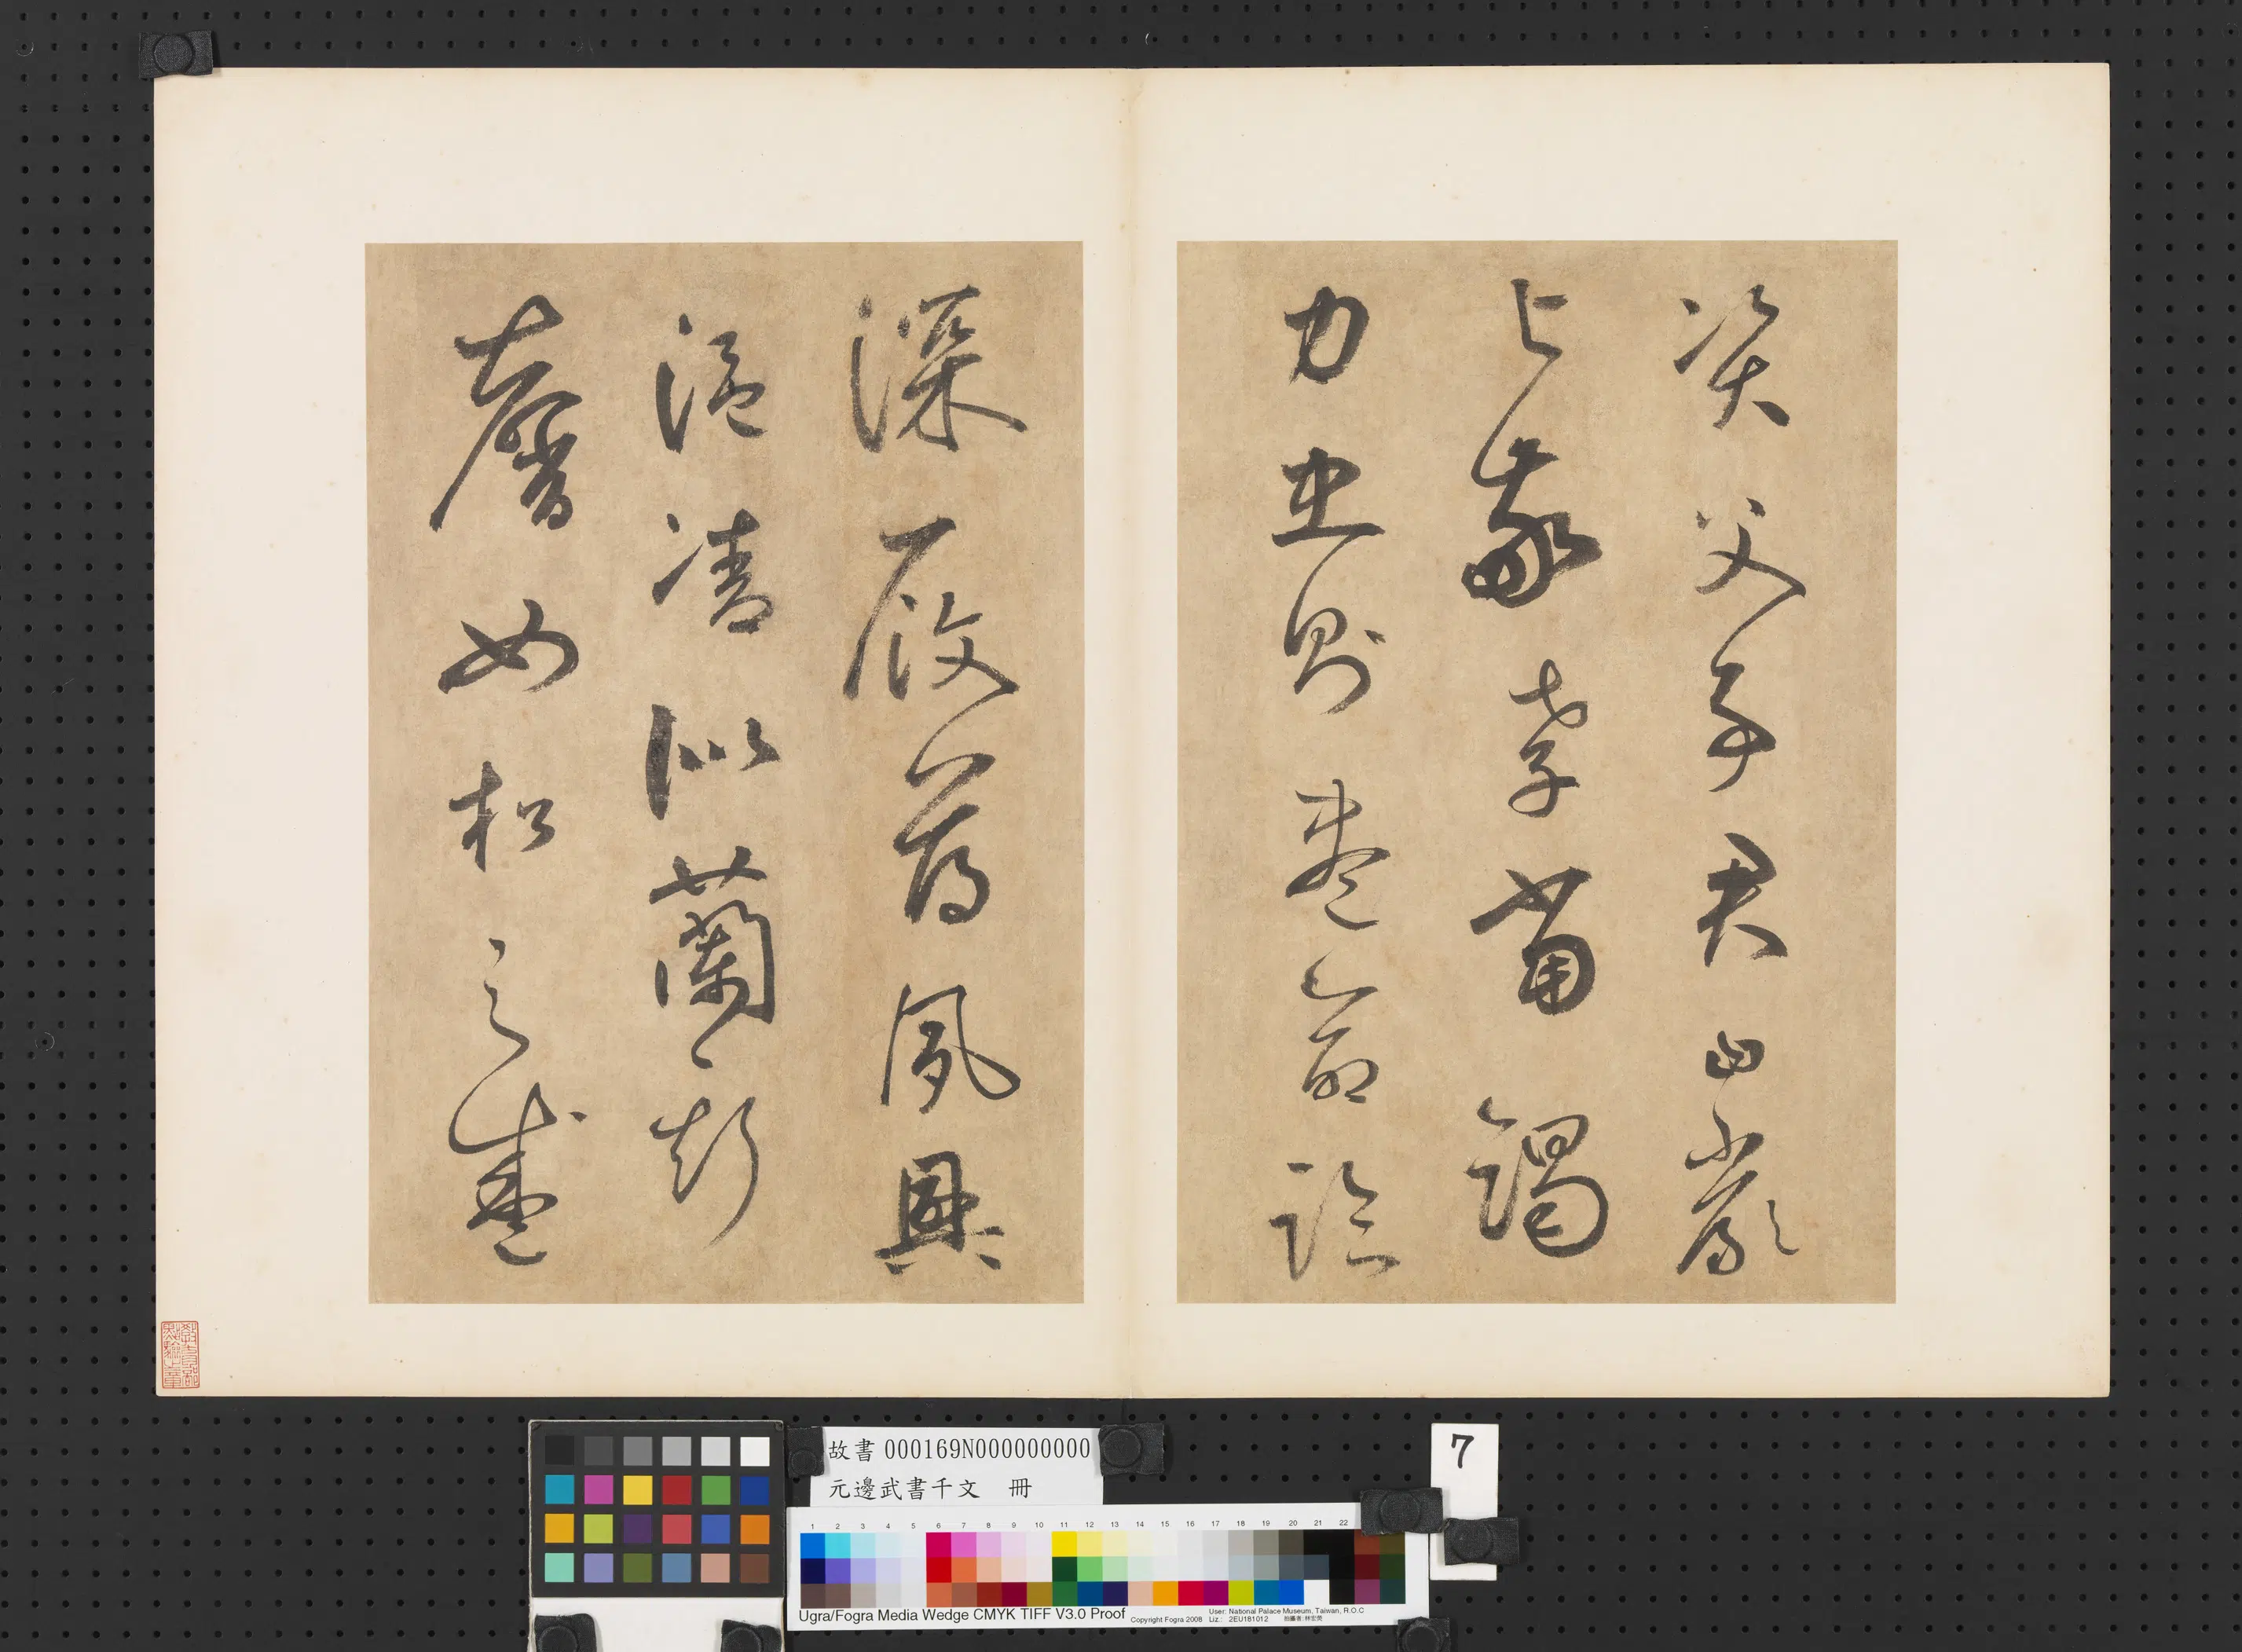 資父事君曰嚴
與敬孝當竭
力忠則盡命臨
深履薄夙興
溫凊似蘭斯
馨如松之盛
7
故書000169N000000000
元邊武書千文 冊
1 2 3 4 5 6 7 8 9 10 11 12 13 14 15 16 17 18 19 20 21 22
Ugra/Fogra Media Wedge CMYK TIFF V3.0 Proof
Copyright Fogra 2008
User: National Palace Museum, Taiwan, R.O.C
Liz.: 2EU181012